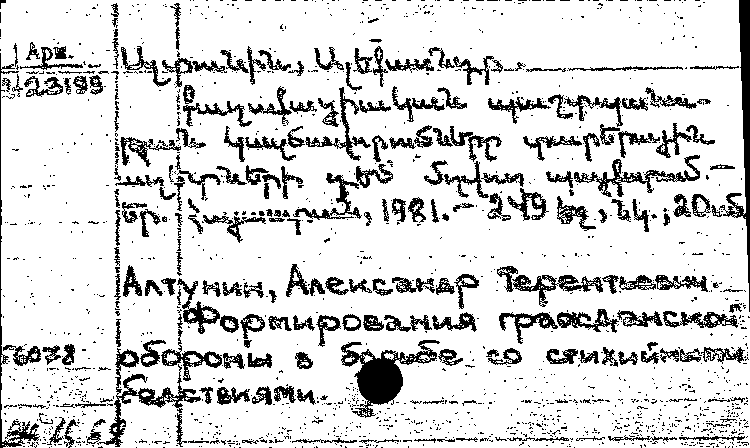 Арш.
Ալտունին, Ալեքսանդր.
23199
Քաղաքացիական պաշտպանու-
թյան կազմավորումները տարերային
աղետների դեմ մղվող պայքարում.—
Եր. Հայաստան, 1981.— 249 էջ, նկ., 20սմ
Алтунин, Александр Терентьевич.
Формирования гражданской
76078 обороны в борьбе со стихийными
бедствиями.